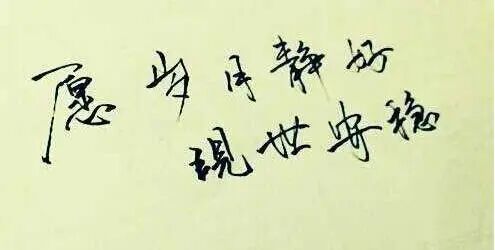 愿岁月静好
現世安稳